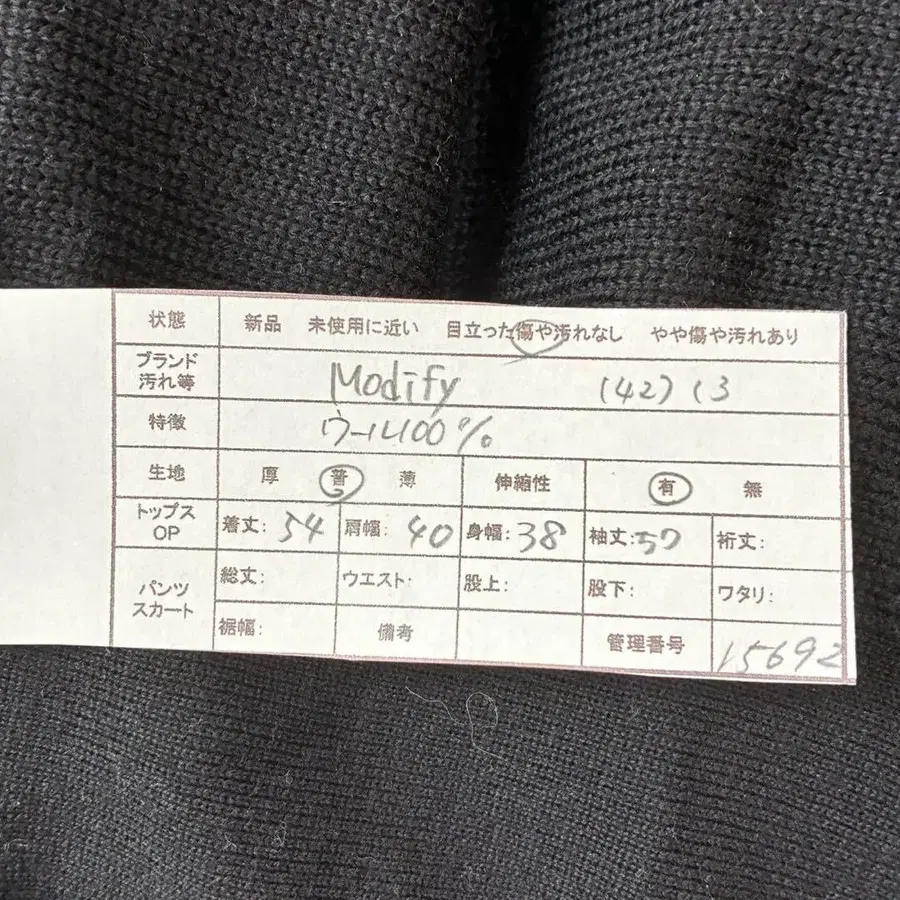 状態 新品 未使用に近い 目立った傷や汚れなし やや傷や汚れあり
ブランド
汚れ等 Modify (42) (3
特徴 ウール100%
生地 厚 普 薄 伸縮性 有 無
トップス
OP 着丈: 54 肩幅: 40 身幅: 38 袖丈: 57 裄丈:
パンツ
スカート 総丈: ウエスト: 股上: 股下: ワタリ:
裾幅: 備考 管理番号 15692